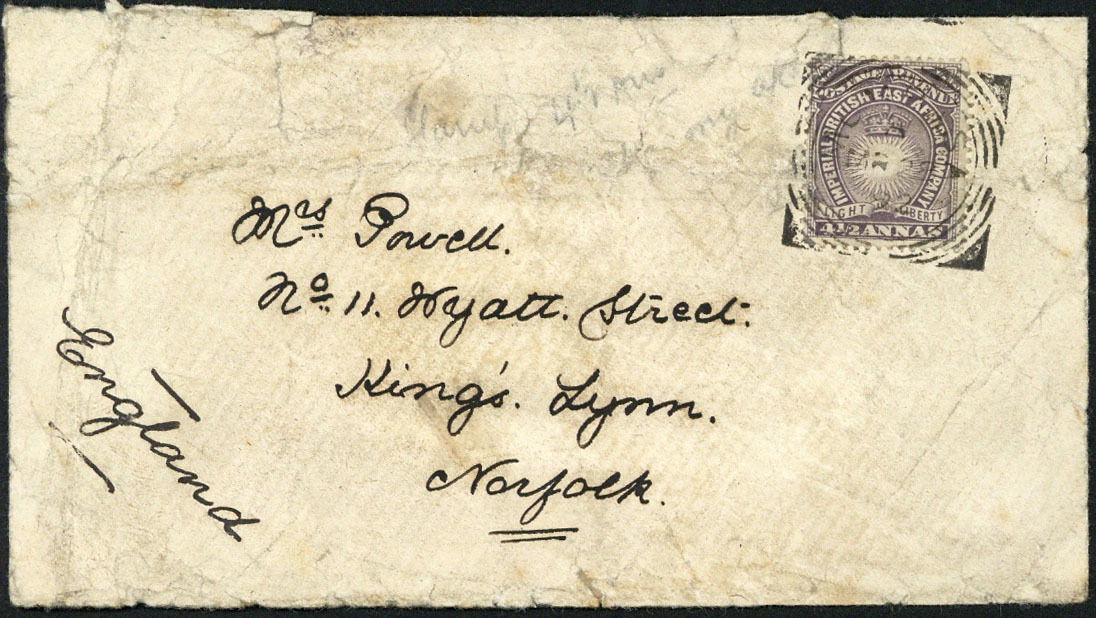 POSTAGE & REVENUE
IMPERIAL BRITISH EAST AFRICA COMPANY
LIGHT LIBERTY
4½ ANNAS
Mrs Powell.
No. 11. Wyatt. Street.
King's. Lynn.
Norfolk.
England